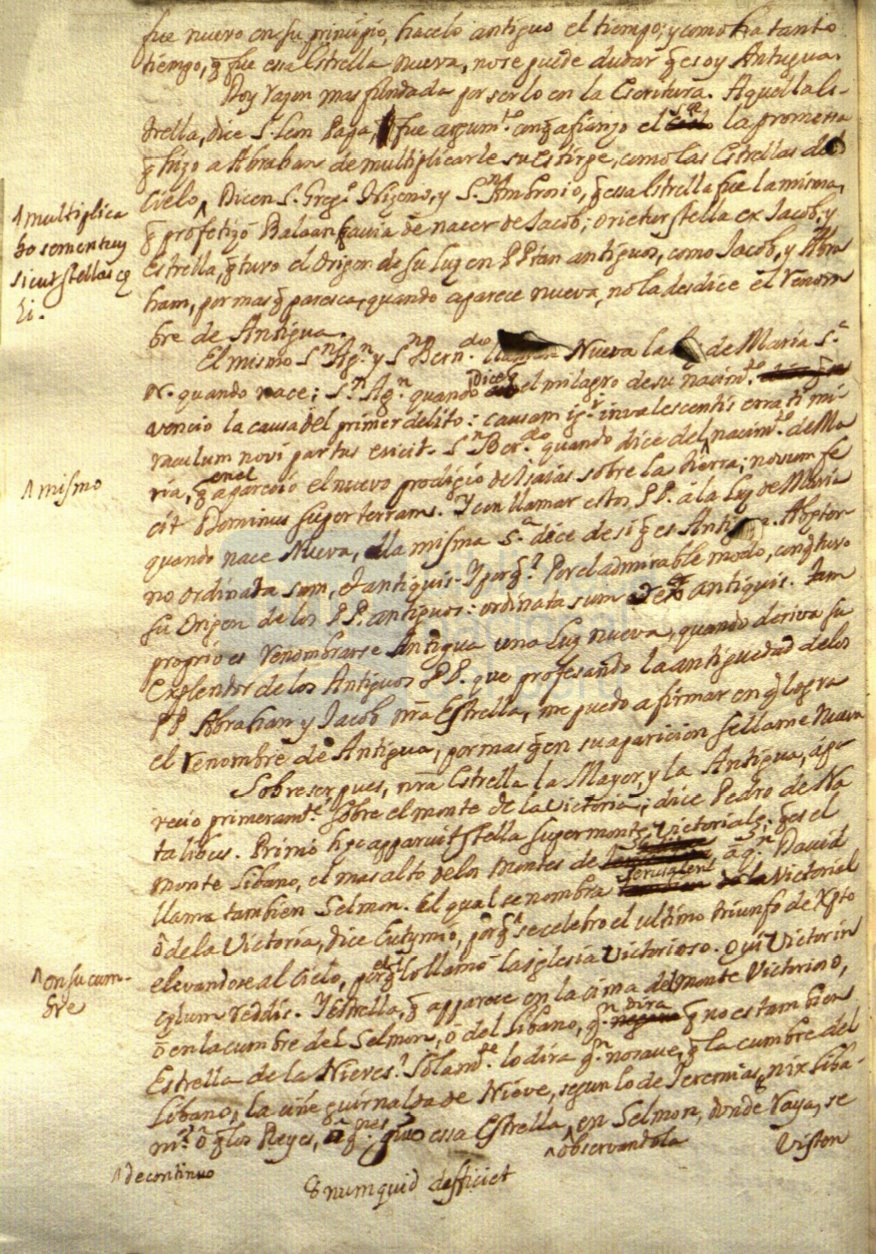 fue nuevo en su principio, hacelo antiguo el tiempo; y como ha tanto
tiempo, q̃ fue essa Estrella nueva, no se puede dudar q̃ es oy Antigua.
Doy razon mas fundada por serlo en la Escritura. Aquella Es-
trella, dice S.ⁿ Leon Papa, fue argum.ᵗᵒ con q̃ afianzo el S.ᵒʳ la promessa
q̃ hizo a Abrahan de multiplicarle su estirpe, como las Estrellas del
Cielo ^ Dicen S. Greg.ᵒ Nizeno, y S.ⁿ Ambrosio, q̃ essa Estrella fue la misma,
^ multiplica
bo semen tuum
sicut stellas cę
li.
q̃ profetizó Balaan havia de nacer de Jacob; orietur stella ex Jacob, y
Estrella, q̃ tuvo el Origen de su Luz en PP tan antiguos, como Jacob, y Abra
ham, por mas q̃ paresca, quando aparece nueva, no la desdice el renom
bre de Antigua.
El mismo S.ⁿ Ag.ⁿ y S.ⁿ Bern.ᵈᵒ Nueva la de Maria S.ᵃ
N.ᵃ quando nace; S.ⁿ Ag.ⁿ quando dice q̃ el milagro de su nacim.ᵗᵒ
vencio la causa del primer delito: causam invalescentis errati mi
raculum novi partus evicit. S.ⁿ Ber.ᵈᵒ quando dice del ^ nacim.ᵗᵒ de Ma
^ mismo
ria, q̃ en el aparecio el nuevo prodigio de Isaias sobre la tierra; novum fe
cit Dominus super terram. Y con llamar estos PP. â la Luz de Maria
quando nace Nueva, ella misma S.ᵃ dice de si q̃ es Antigua. Ab eter
no ordinata sum, et antiquis. Y porq̃? Por el admirable modo, con q̃ tuvo
su Origen de los PP. antiguos: ordinata sum ex antiquis. Tam
proprio es renombrarse Antigua una Luz nueva, quando deriva su
Explendor de los Antiguos PP. que profesando la antiguedad de los
PP Abraham y Jacob nr̃a Estrella, me puedo afirmar en q̃ logra
el renombre de Antigua, por mas q̃ en su aparicion se llame Nueva
Sobre ser pues, nr̃a Estrella la Mayor, y la Antigua, apa
recio primeram.ᵗᵉ sobre el monte de la victoria; dice Pedro de Na
talibus. Primò apparuit stella super monte Victoriale; q̃ es el
monte Libano, el mas alto de los montes de Jerusalen â q.ⁿ David
llama tambien Selmon. El qual se nombra Victorial
ô de la Victoria, dice Eutymio, porq̃ se celebro el ultimo triunfo de Xpto
elevandose al Cielo, por el q̃ lo llamó la iglesia Victorioso. Qui Victor in
cęlum reddis. Y Estrella, q̃ aparece en la cima del monte Victorioso,
^ en su cum-
bre
ô en la cumbre del Selmon, ô del Libano, q.ⁿ dira q̃ no es tambien
Estrella de la Nieves? Solam.ᵗᵉ lo dira q.ⁿ no save, q̃ la cumbre del
Libano, la ciñe guirnalda de Nieve, segun lo de Jeremias, nix Liba-
ni. Ô q̃ los Reyes, essa Estrella, en Selmon, donde raya, se
^ observandola
viston
^ de continuo
numquid defficiet